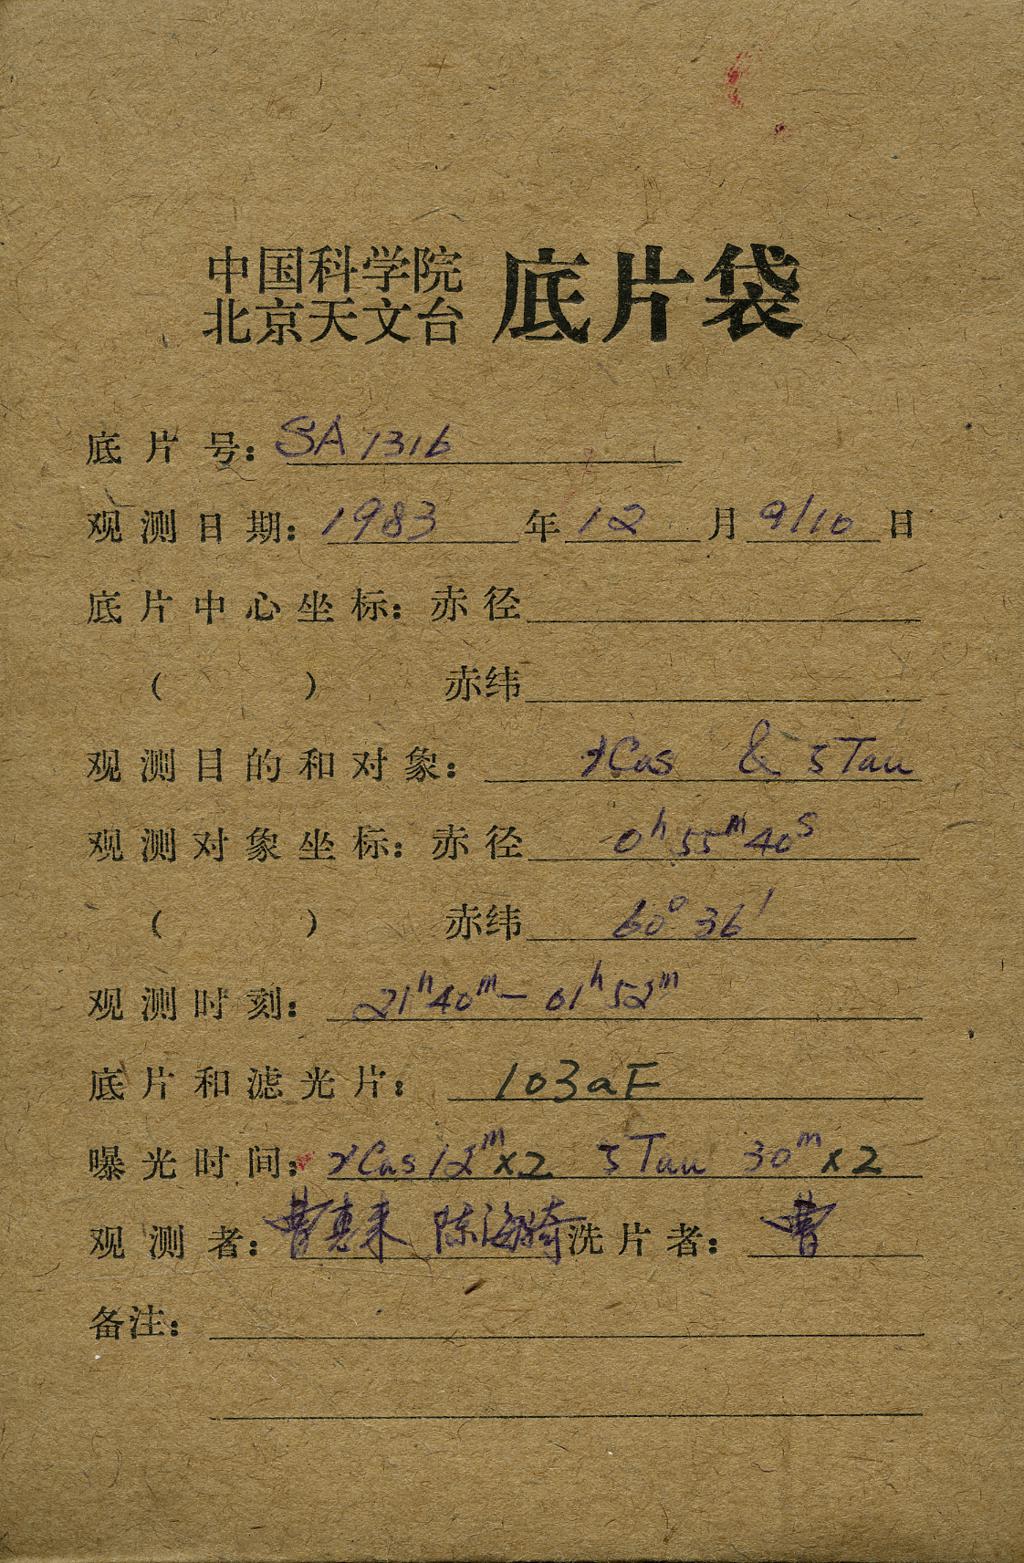 中国科学院
北京天文台 底片袋
底片号: SA 1316
观测日期: 1983 年 12 月 9/10 日
底片中心坐标: 赤径
( ) 赤纬
观测目的和对象: γCas & 5Tau
观测对象坐标: 赤径 0h 55m 40s
( ) 赤纬 60° 36'
观测时刻: 21h40m - 01h52m
底片和滤光片: 103aF
曝光时间: γCas 12m×2 5Tau 30m×2
观测者: 曹惠来 陈海骑 洗片者: 曹
备注: